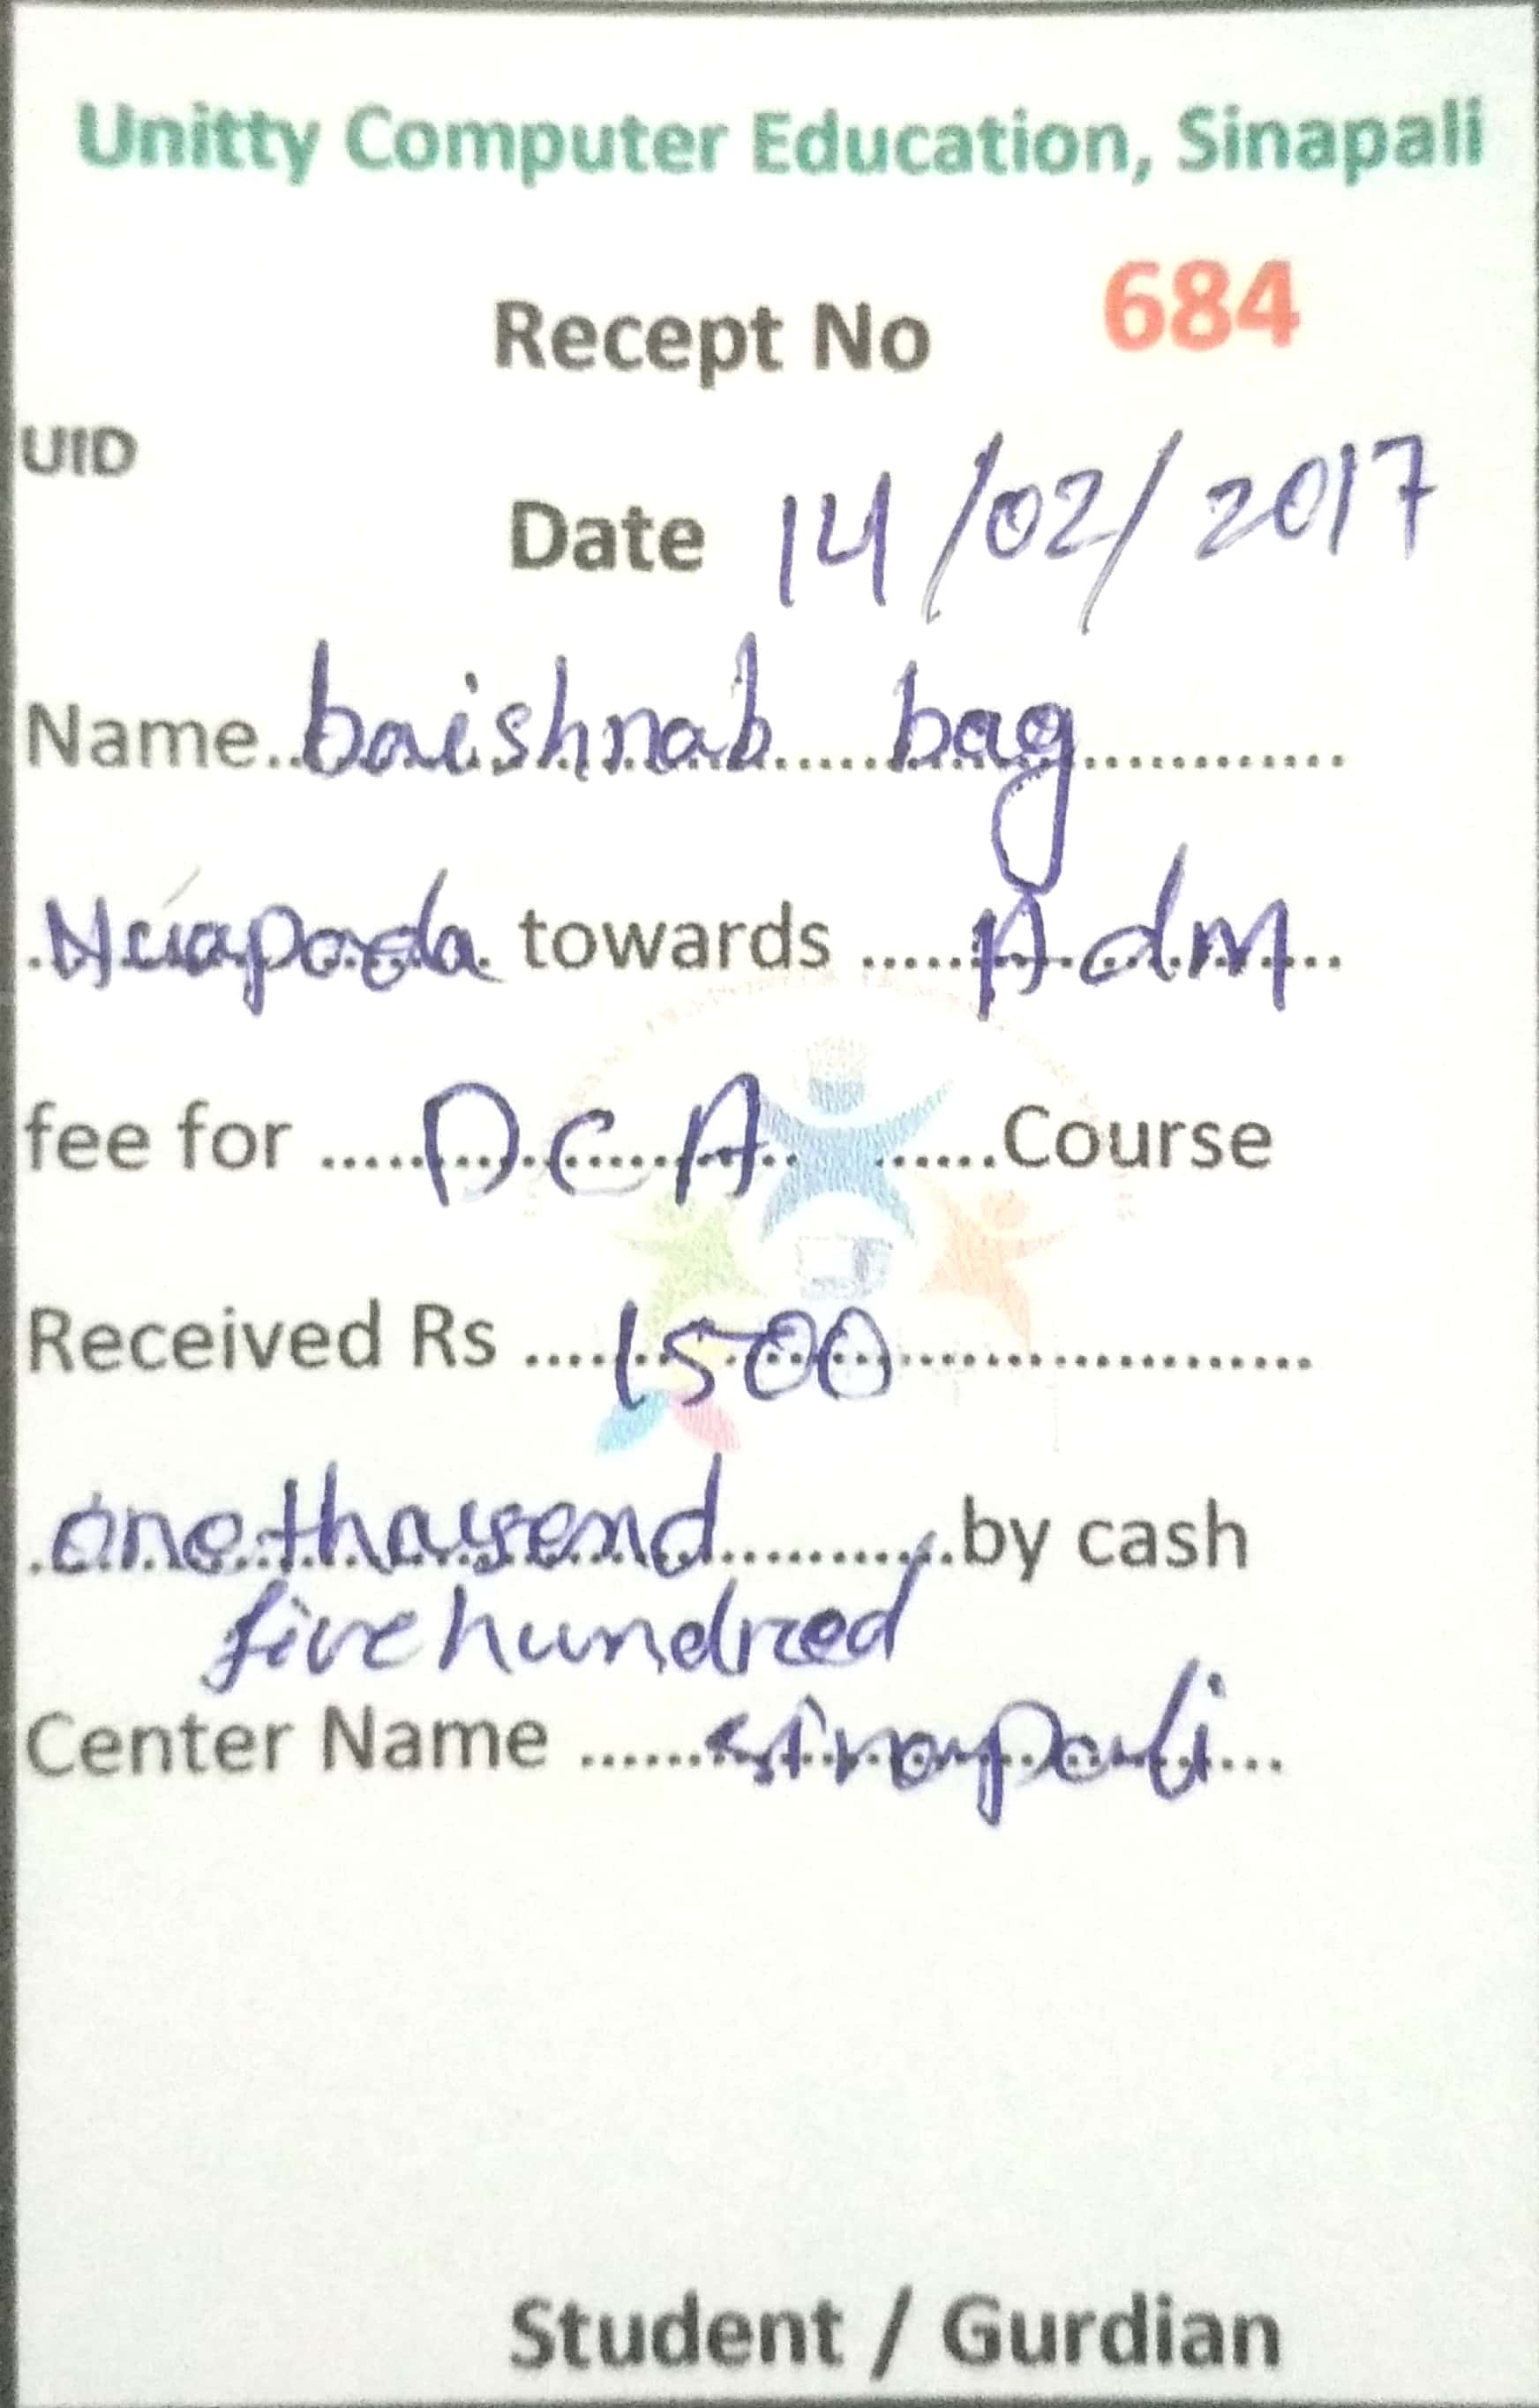 Unitty Computer Education, Sinapali
Recept No 684
UID
Date 14/02/2017
Name baishnab bag
Nuapada towards Adm
fee for DCA Course
Received Rs 1500
one thausend by cash
five hundred
Center Name sinapali
Student / Gurdian